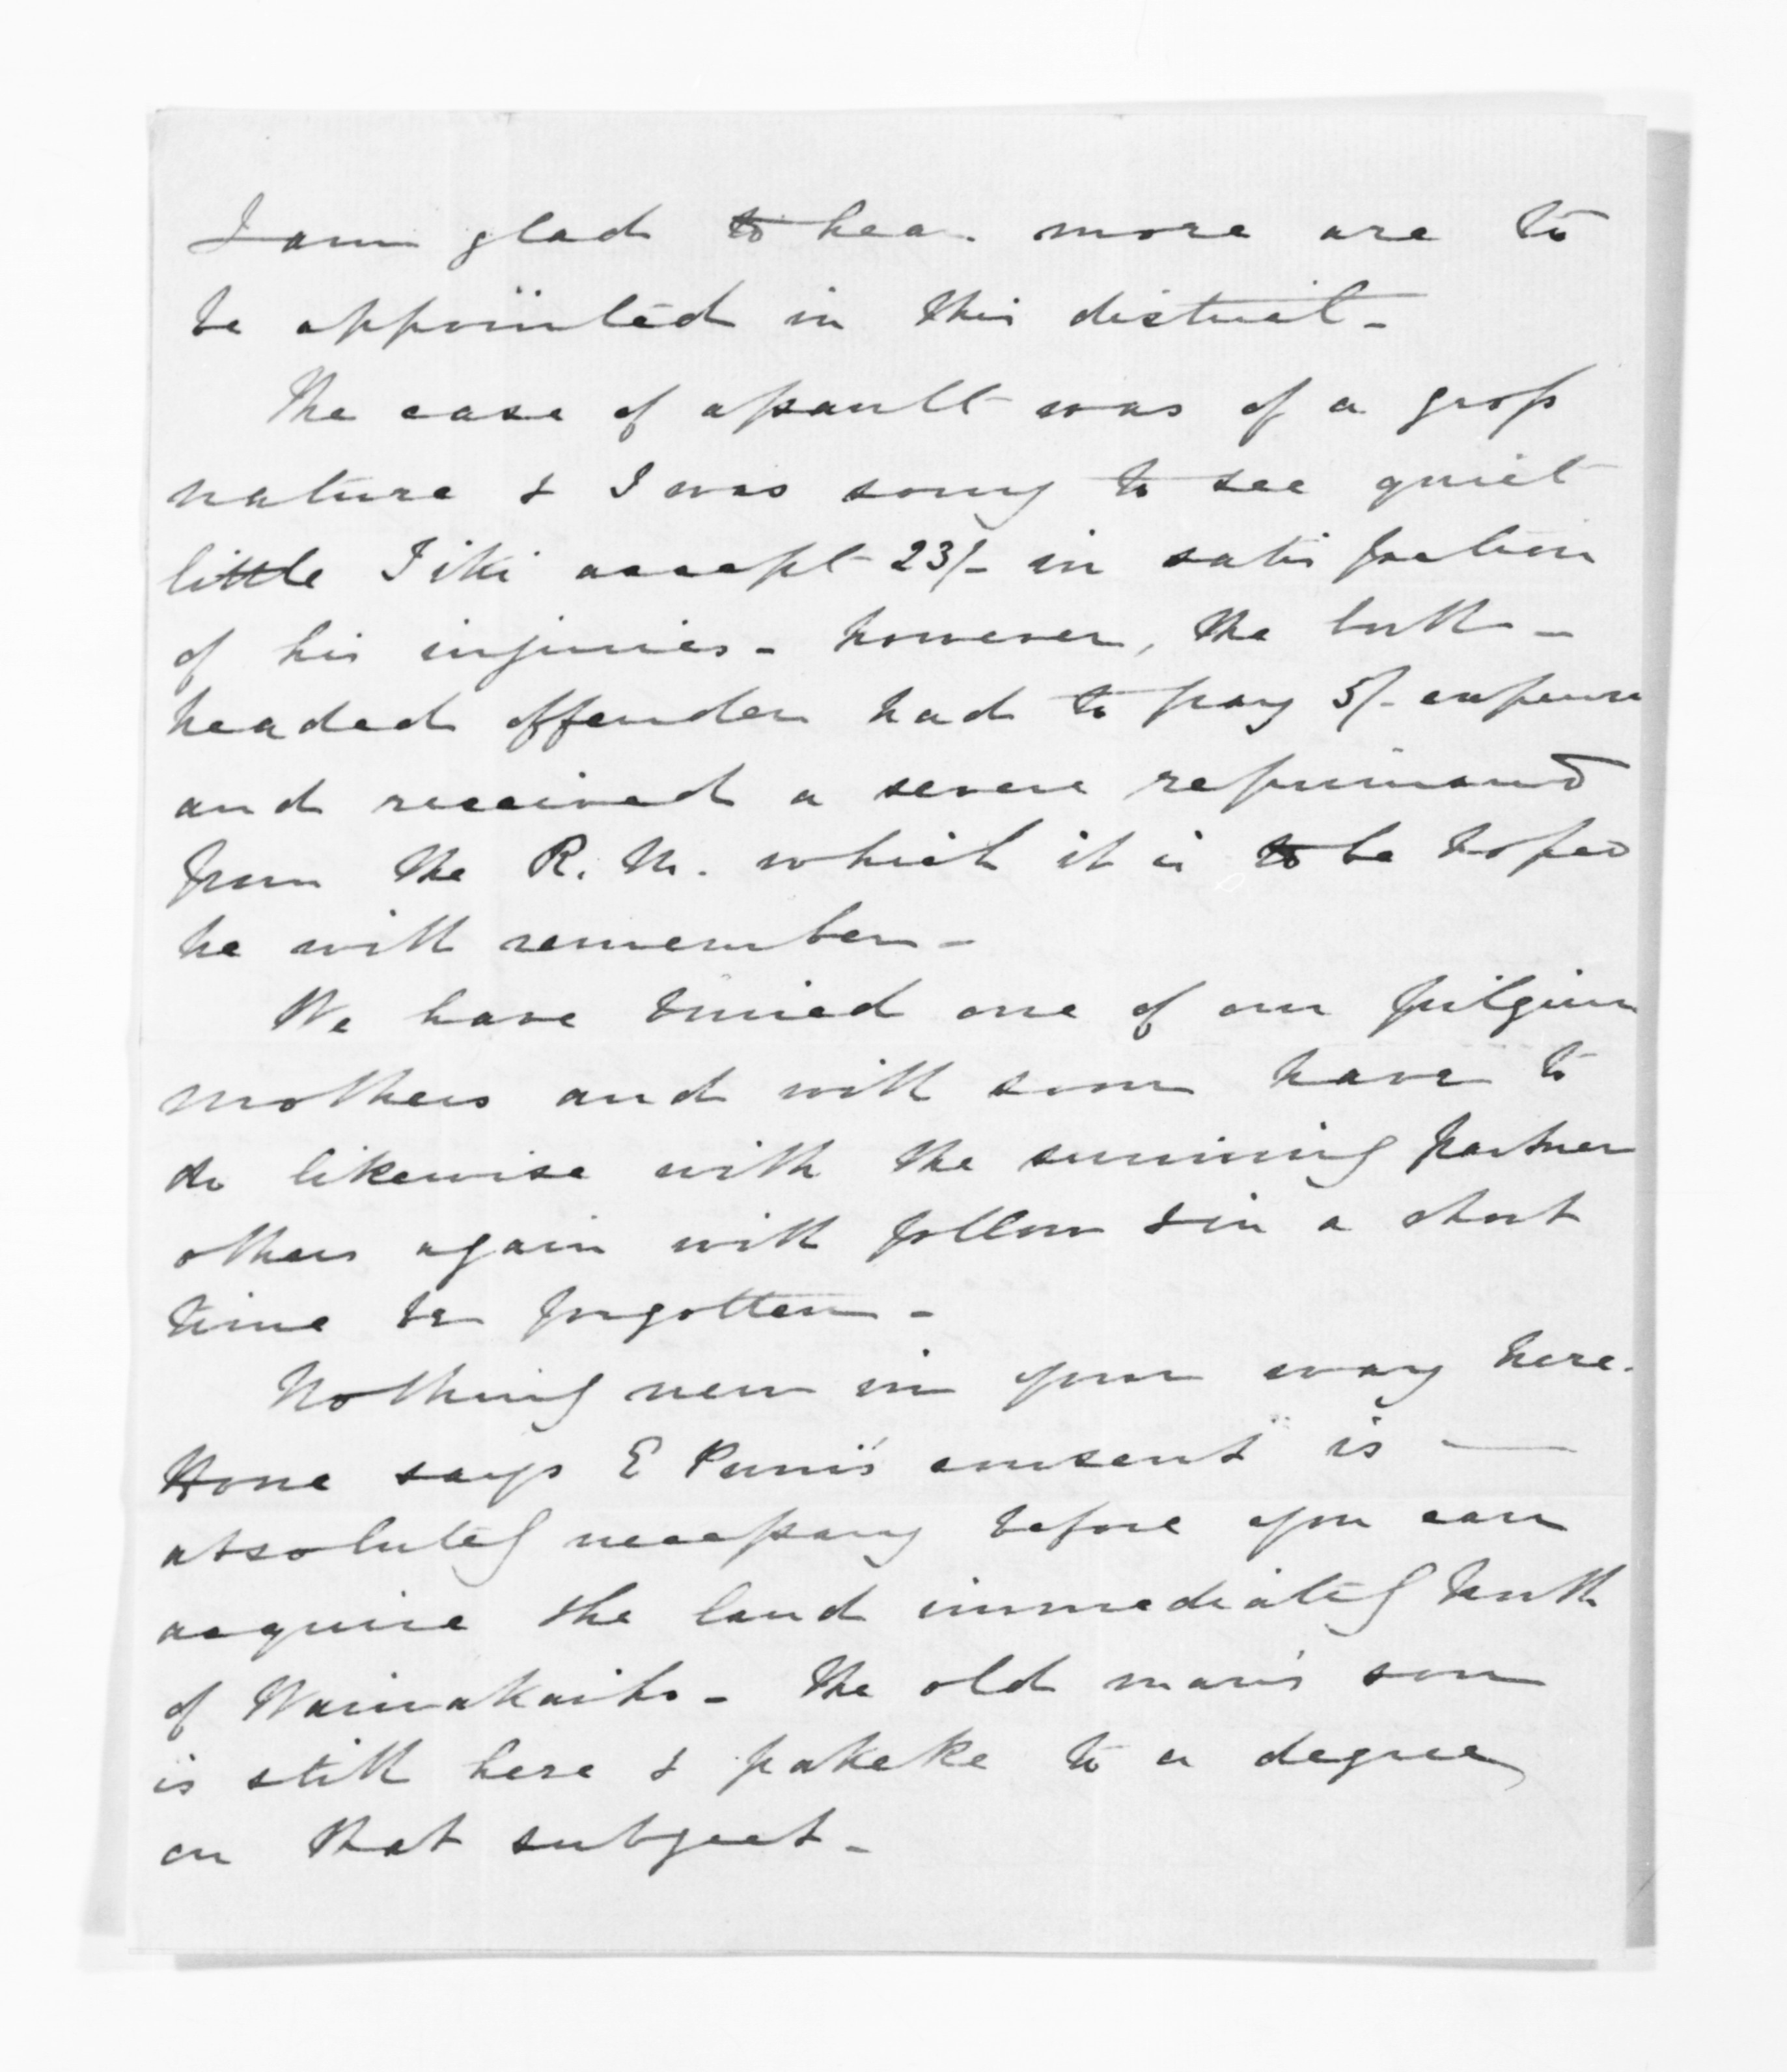 I am glad to hear more are to
be appointed in this district -
The case of assault was of a gross
nature & I was sorry to see quiet
little Tiki accept 23/- in satisfaction
of his injuries - however, the bull -
headed offender had to pay 5/- expense
and received a severe reprimand
from the R. M. which it is to be hoped
he will remember -
We have buried one of our pilgrim
mothers and will soon have to
do likewise with the surviving partner
others again will follow & in a short
time be forgotten -
Nothing new in your way here.
Hone says E Puni's consent is —
absolutely necessary before you can
acquire the land immediately
of Waiwakaiho - The old man's son
is still here & pakeke to a degree
on that subject -